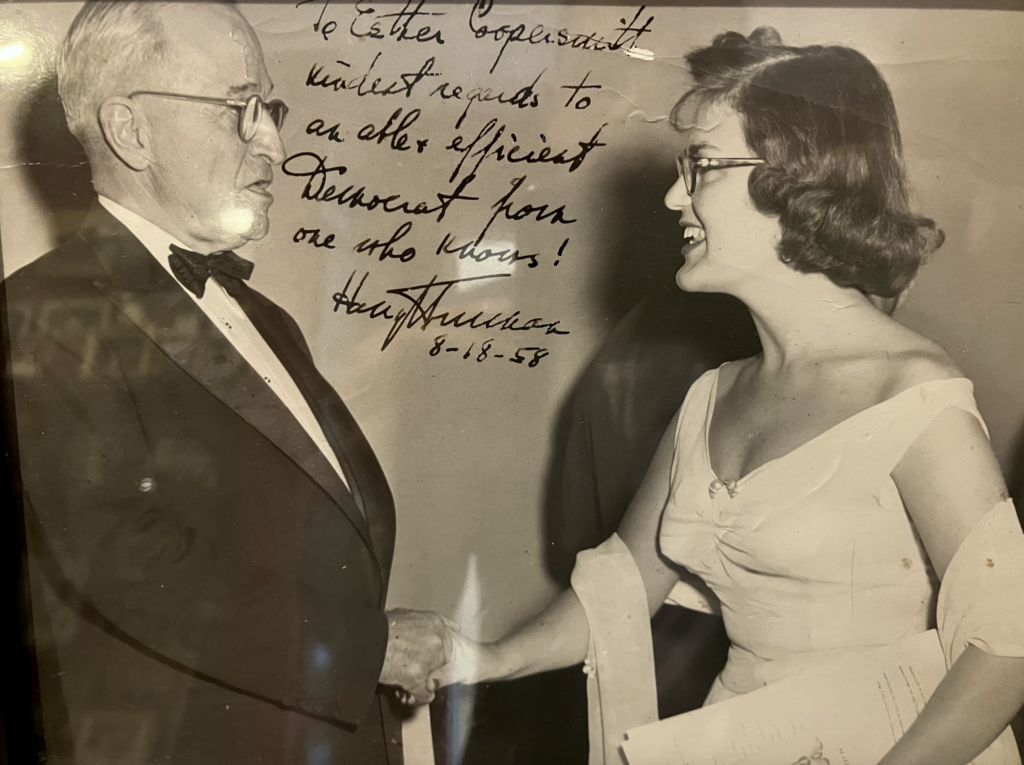 To Esther Coopersmith
kindest regards to
an able & efficient
Democrat from
one who knows!
Harry Truman
8-18-58